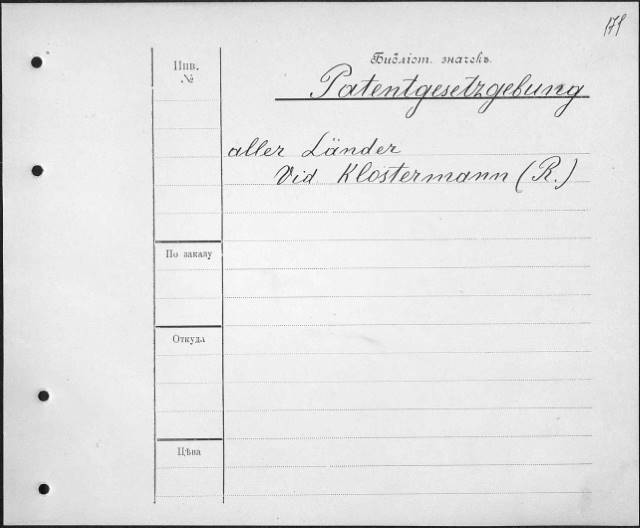 171
Библіот. значекъ.
Инв.
№
Patentgesetzgebung
aller Länder
Vid Klostermann (R.)
По заказу
Откуда
Цѣна